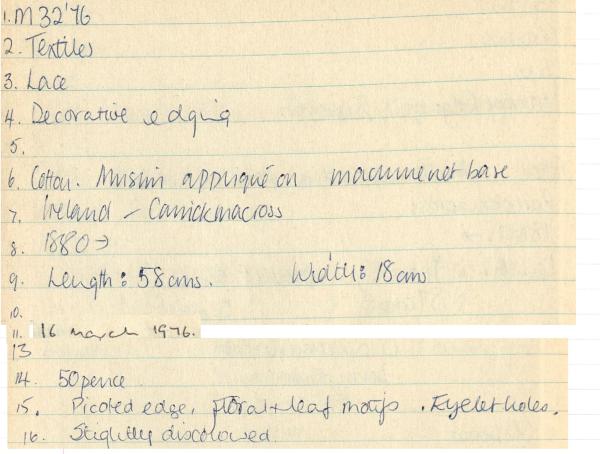 1. M 32'76
2. Textiles
3. Lace
4. Decorative edging
5.
6. Cotton. Muslin appliqué on machine net base
7. Ireland - Carrickmacross
8. 1880→
9. Length: 58cms. Width: 18cms
10.
11. 16 march 1976.
13
14. 50pence.
15. Picoted edge, floral + leaf motifs. Eyelet holes.
16. Slightly discoloured.